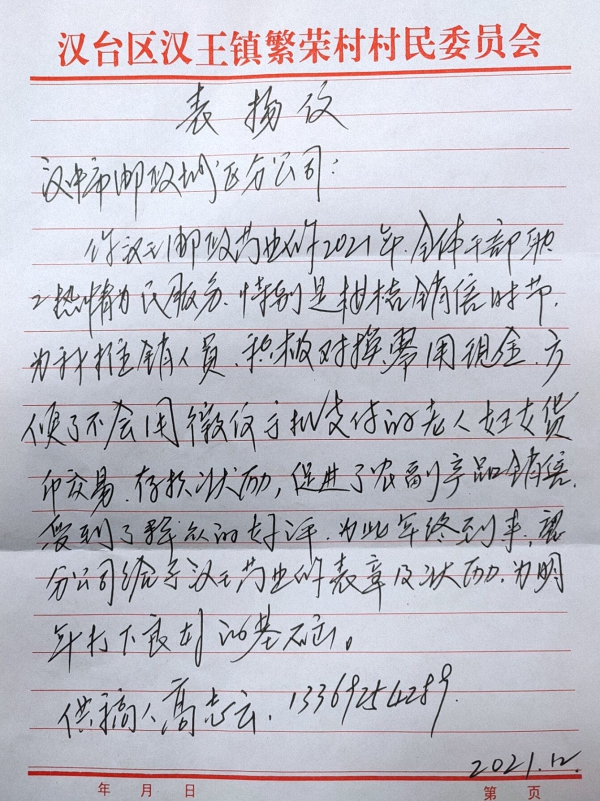 汉台区汉王镇繁荣村村民委员会
表扬信
汉中市邮政城区分公司:
你汉王邮政营业所2021年.全体干部职
工热情为民服务.特别是柑桔销售时节,
为我推销人员.积极对换零用现金.方
便了不会用微信手机支付的老人妇女货
币交易.存款状励,促进了农副产品销售.
受到了群众的好评.为此年终到来,望
分公司给予汉王营业所表章及状励.为明
年打下良好的基础。
供稿人高志云.13369254289.
2021.12.
年 月 日
第 页